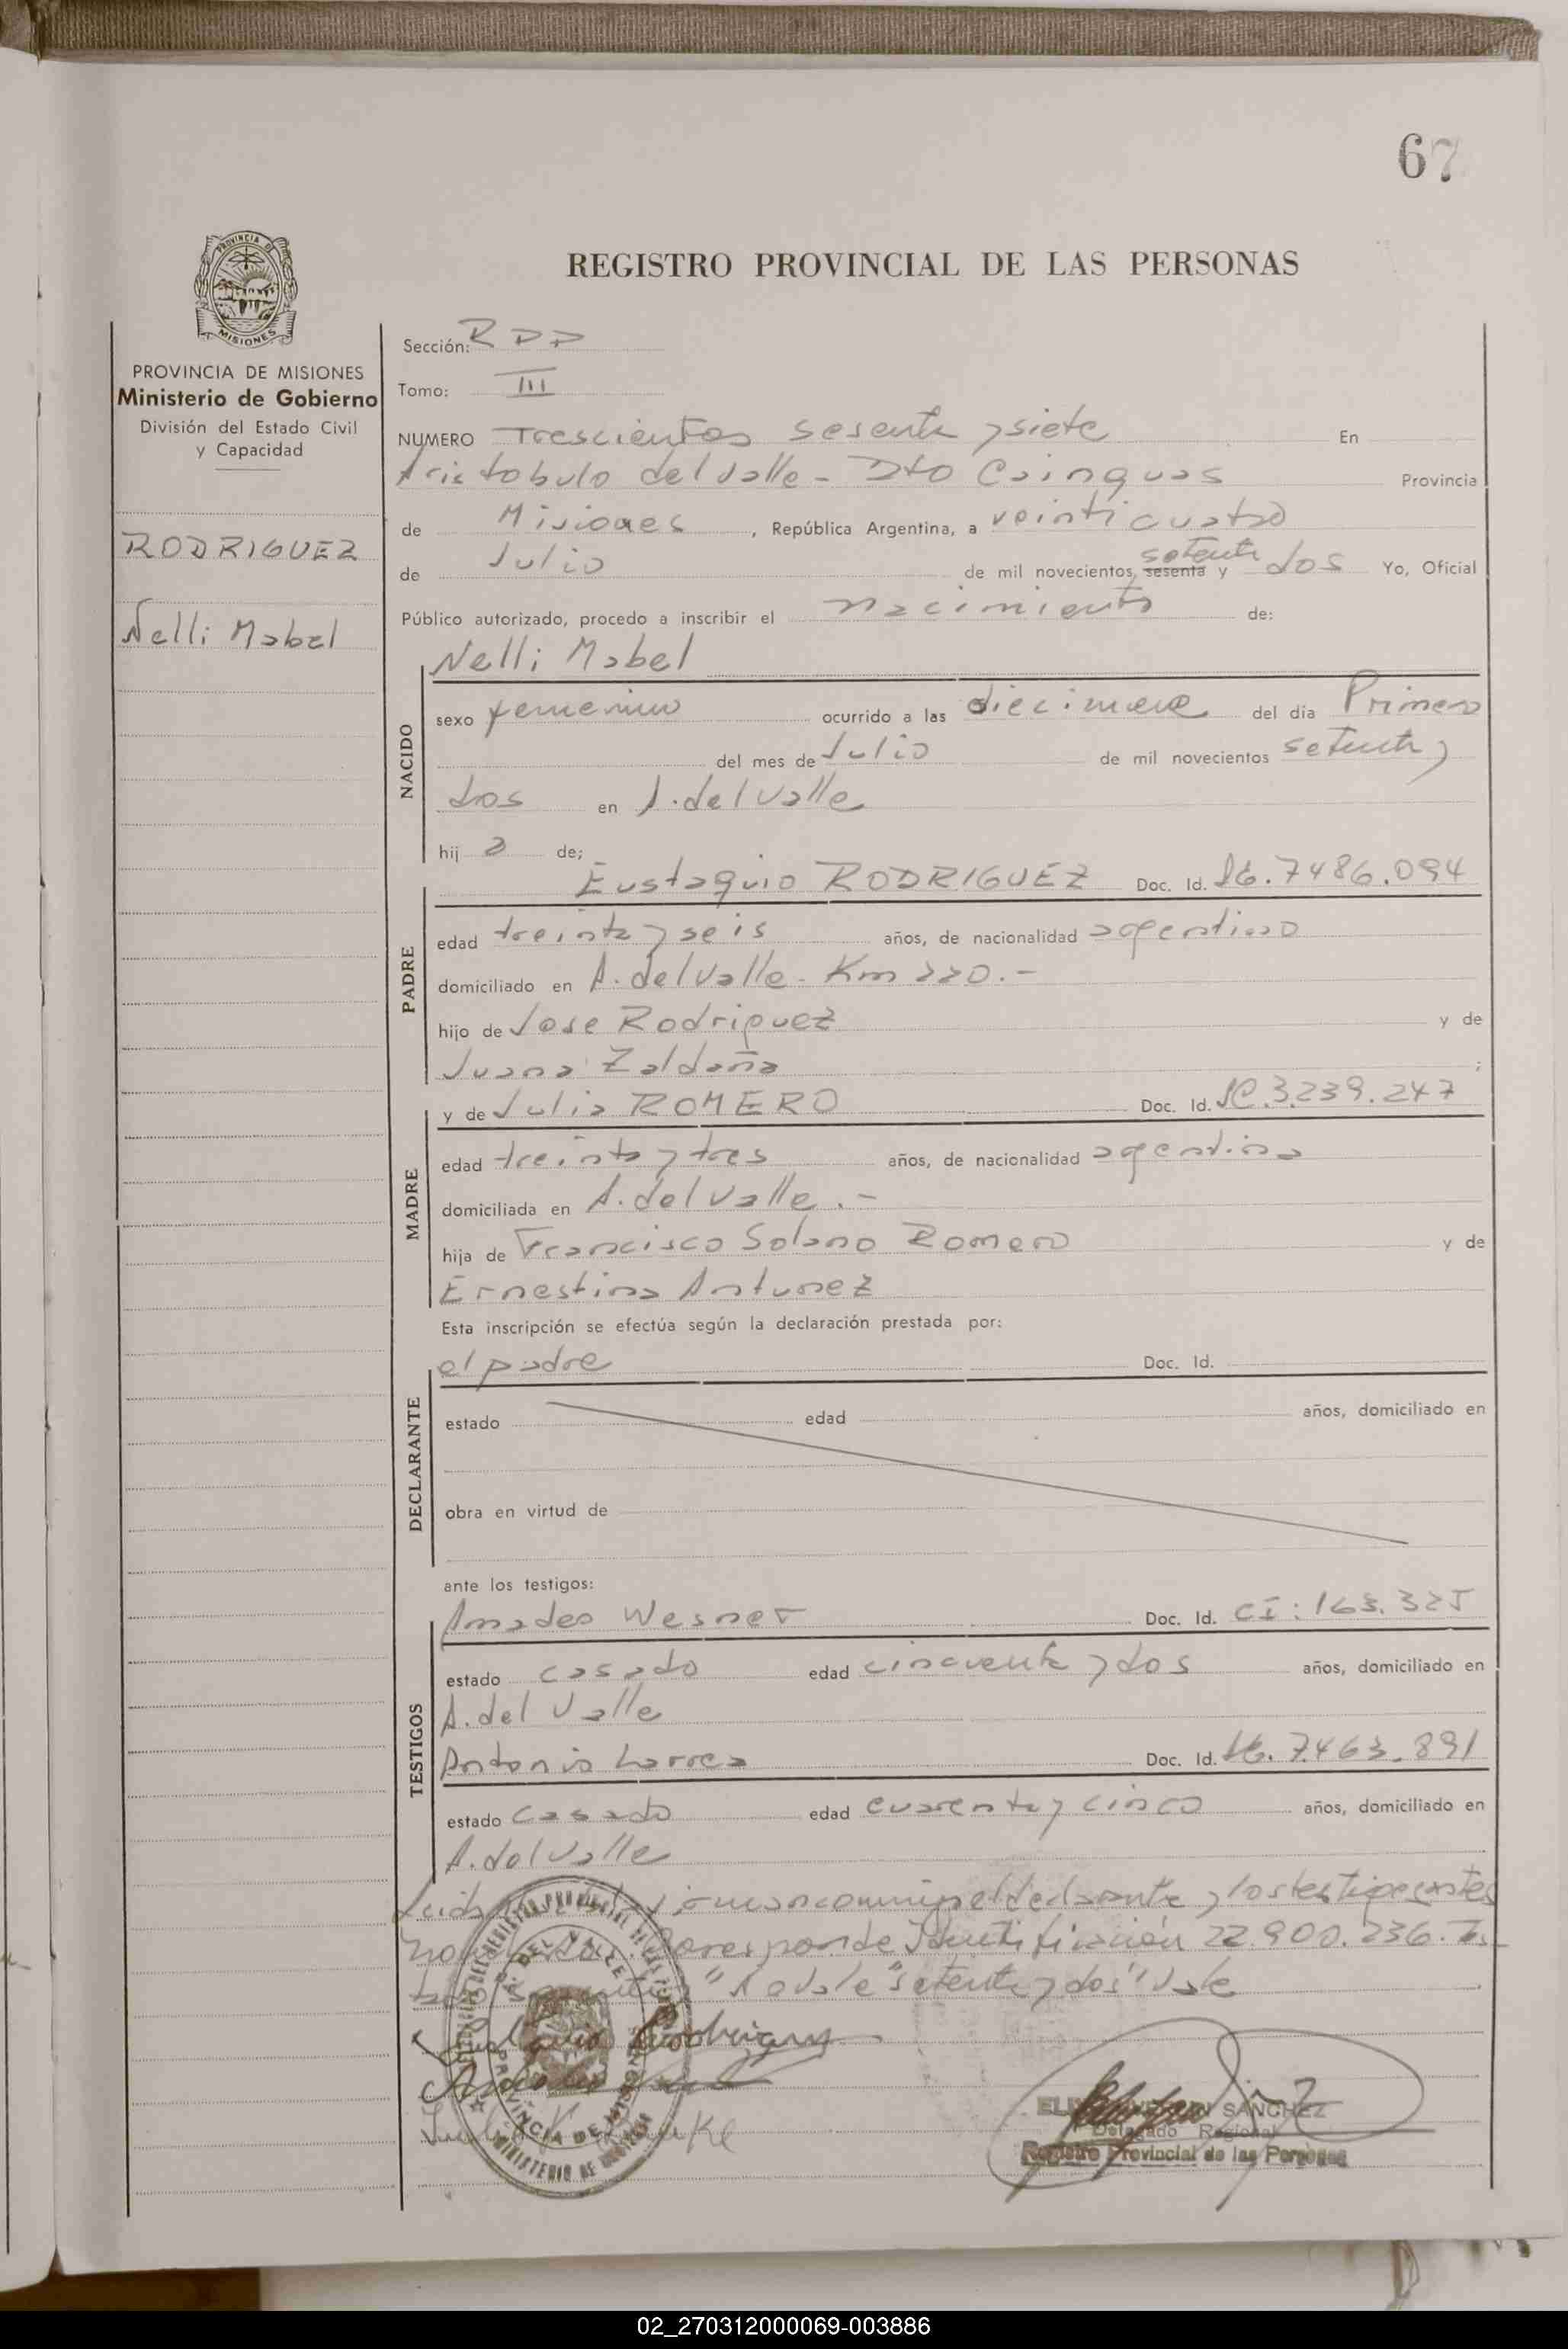 67
PROVINCIA DE
MISIONES
REGISTRO PROVINCIAL DE LAS PERSONAS
PROVINCIA DE MISIONES
Ministerio de Gobierno
División del Estado Civil
y Capacidad
RODRIGUEZ
Nelli Mabel
Sección: RDD
Tomo: III
NUMERO Trescientos sesenta y siete En
Aristobulo del Valle - Dto Cainguas Provincia
de Misiones, República Argentina, a veinticuatro
de Julio de mil novecientos, sesenta setenta y dos Yo, Oficial
Público autorizado, procedo a inscribir el nacimiento de:
Nelli Mabel
NACIDO
sexo femenino ocurrido a las diecinueve del día Primero
del mes de Julio de mil novecientos setenta y
dos en A. del Valle
hij a de;
Eustaquio RODRIGUEZ Doc. Id. 7486.094
PADRE
edad treinta y seis años, de nacionalidad argentino
domiciliado en A. del Valle - Km 220.-
hijo de Jose Rodriguez y de
Juana Zaldaña ;
y de Julia ROMERO Doc. Id. 3.239.247
MADRE
edad treinta y tres años, de nacionalidad argentina
domiciliada en A. del Valle.-
hija de Francisco Solano Romero y de
Ernestina Antunez
Esta inscripción se efectúa según la declaración prestada por:
el padre Doc. Id.
DECLARANTE
estado edad años, domiciliado en
obra en virtud de
ante los testigos:
Amadeo Wesner Doc. Id. CI: 163.325
TESTIGOS
estado casado edad cincuenta y dos años, domiciliado en
A. del Valle
Antonio Larrea Doc. Id. 7.463.891
estado casado edad cuarenta y cinco años, domiciliado en
A. del Valle
firman conmigo el declarante y los testigos antes
Coresponde Identificación 22.900.236.
"setenta y dos" Vale
DEL VALLE
PROVINCIA DE MISIONES
MINISTERIO DE
SANCHEZ
Delegado Regional
Registro Provincial de las Personas
02_270312000069-003886